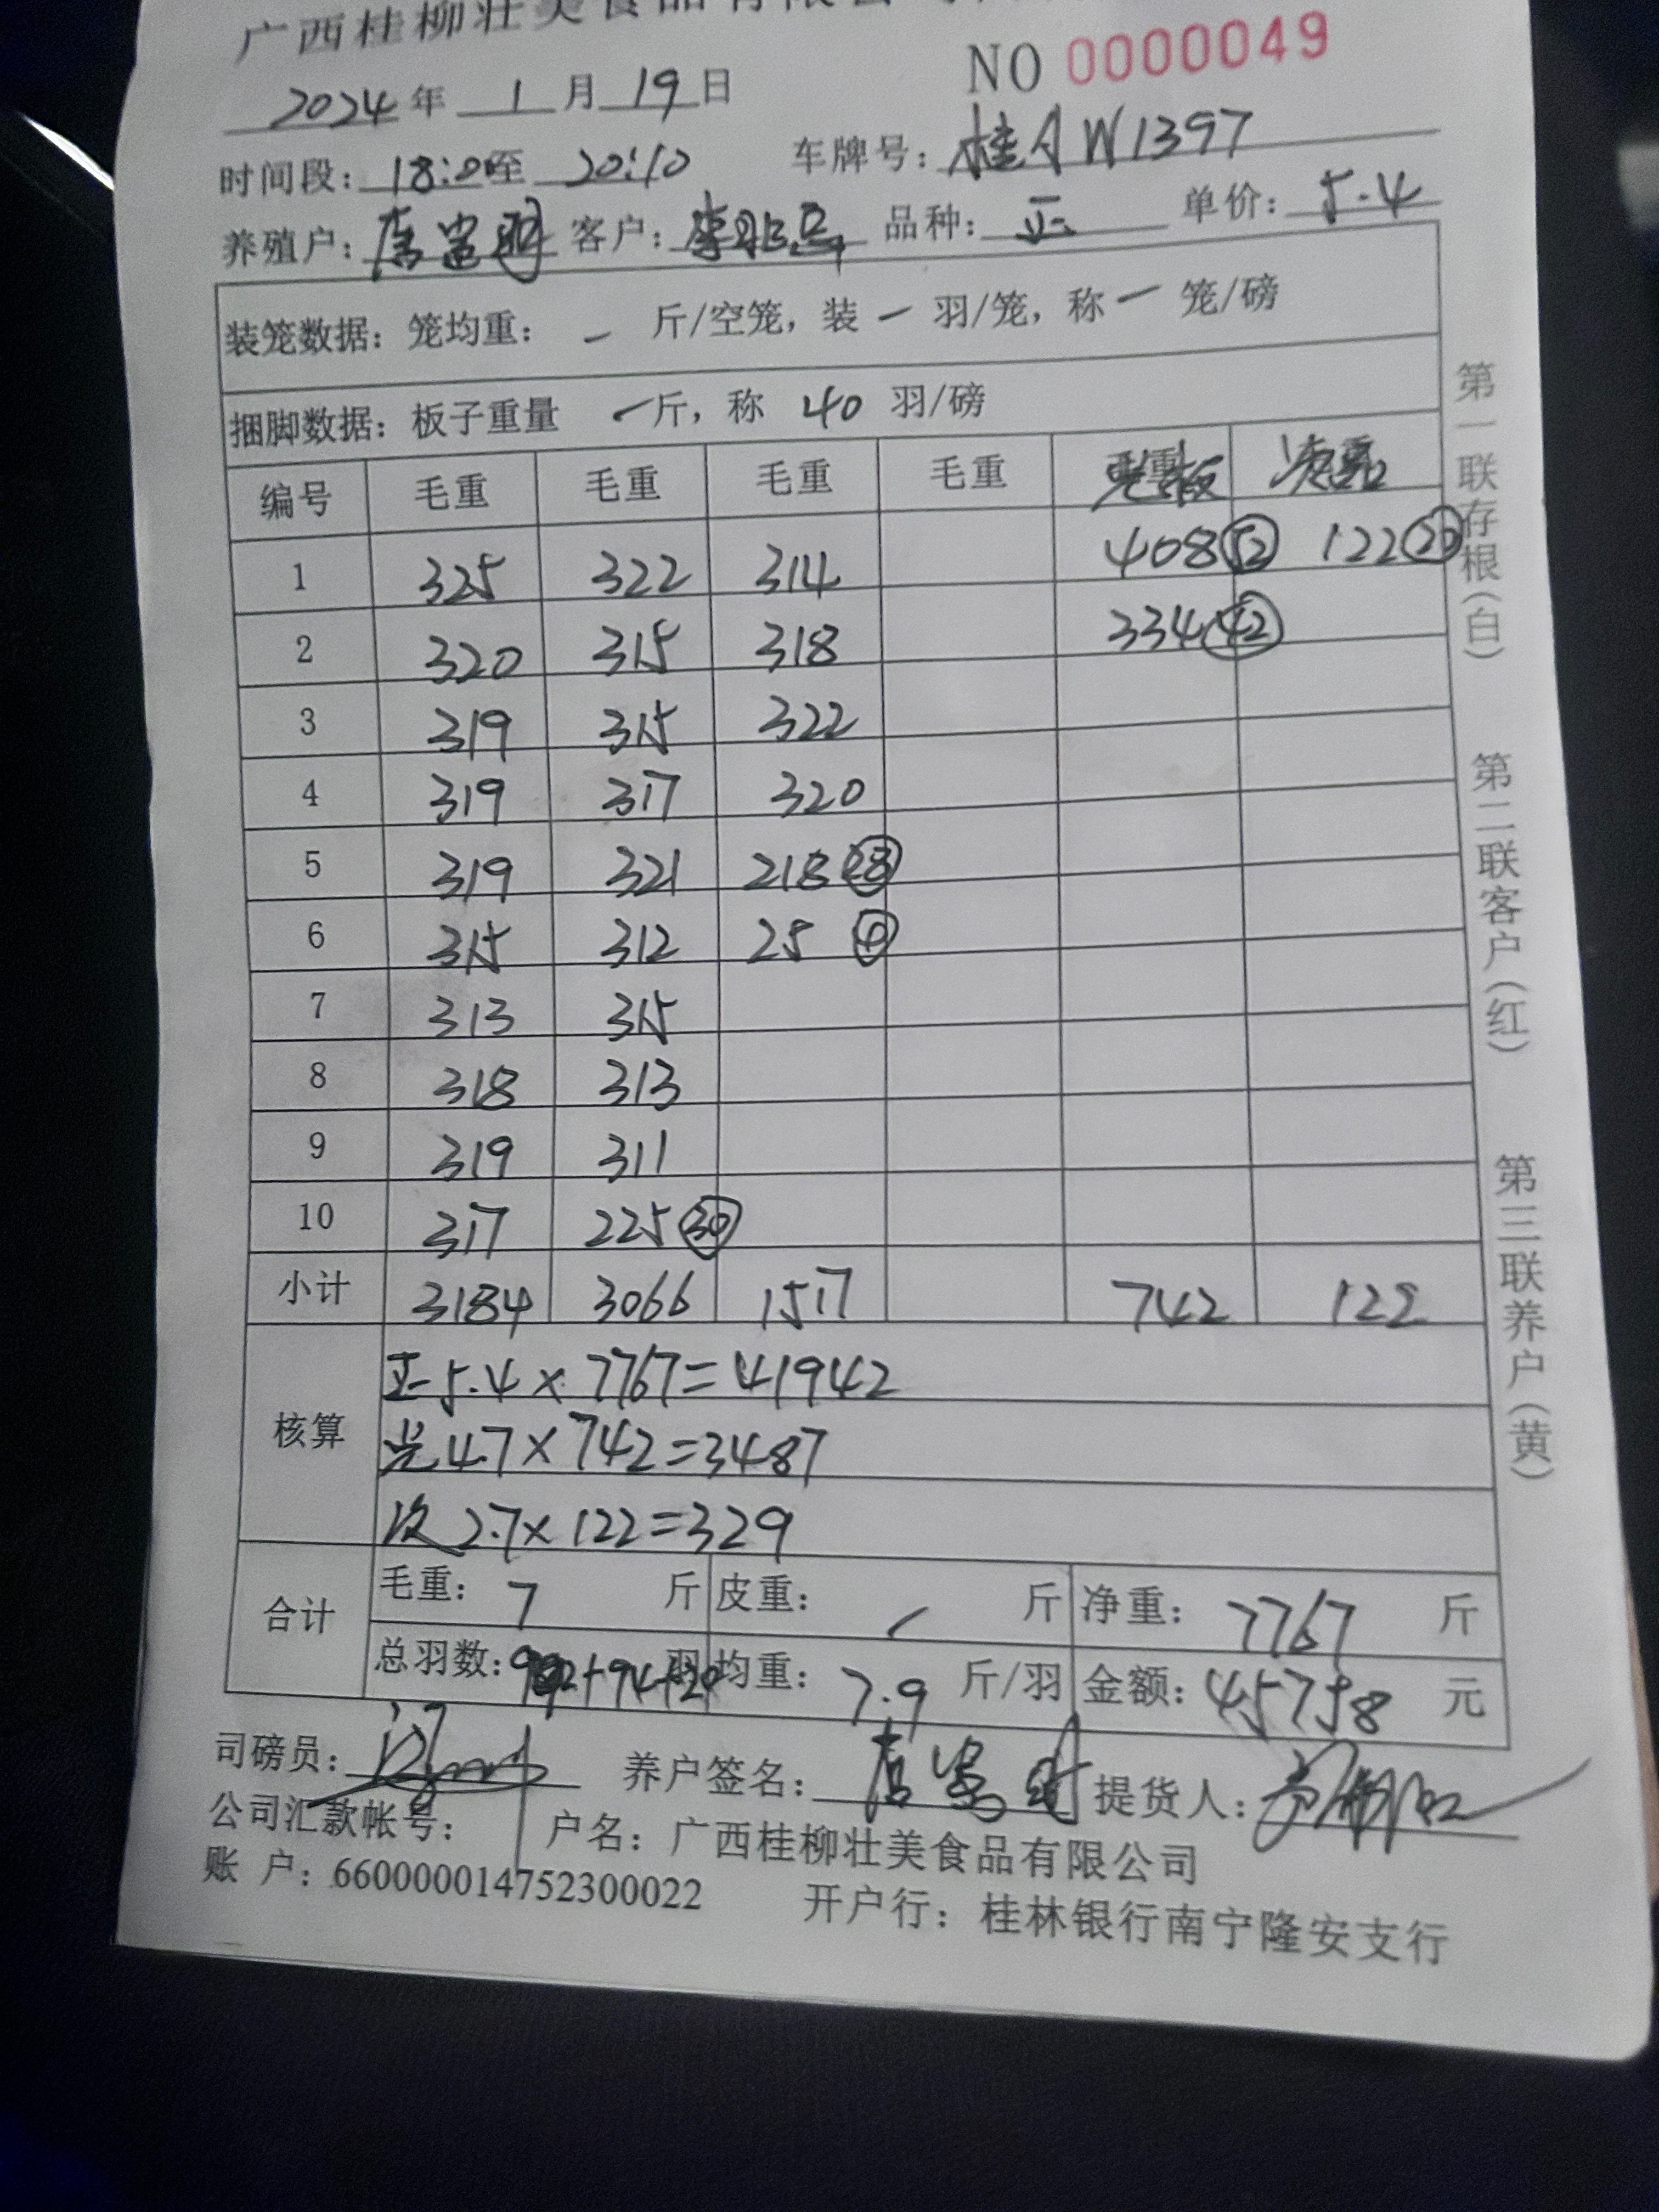 广西桂柳壮美食品有限公司
NO 0000049
2024年 1月19日
时间段：18:00至 20:10 车牌号：桂A W1397
养殖户： 客户： 品种：正 单价：5.4
装笼数据：笼均重：- 斤/空笼，装 - 羽/笼，称 - 笼/磅
捆脚数据：板子重量 - 斤，称 40 羽/磅
编号 毛重 毛重 毛重 毛重 光板 次品
1 325 322 314 408 52 122 20
2 320 315 318 334 42
3 319 315 322
4 319 317 320
5 319 321 218 28
6 315 312 25
7 313 315
8 318 313
9 319 311
10 317 225 30
小计 3184 3066 1517 742 122
核算
正 5.4 × 7767=41942
光 4.7 × 742=3487
次 2.7× 122=329
合计 毛重：7 斤 皮重： 斤 净重：7767 斤
总羽数： +94+20 羽 均重：7.9 斤/羽 金额：45758 元
司磅员： 养户签名： 提货人：
公司汇款帐号： 户名：广西桂柳壮美食品有限公司
账 户：660000014752300022 开户行：桂林银行南宁隆安支行
第一联存根（白）
第二联客户（红）
第三联养户（黄）